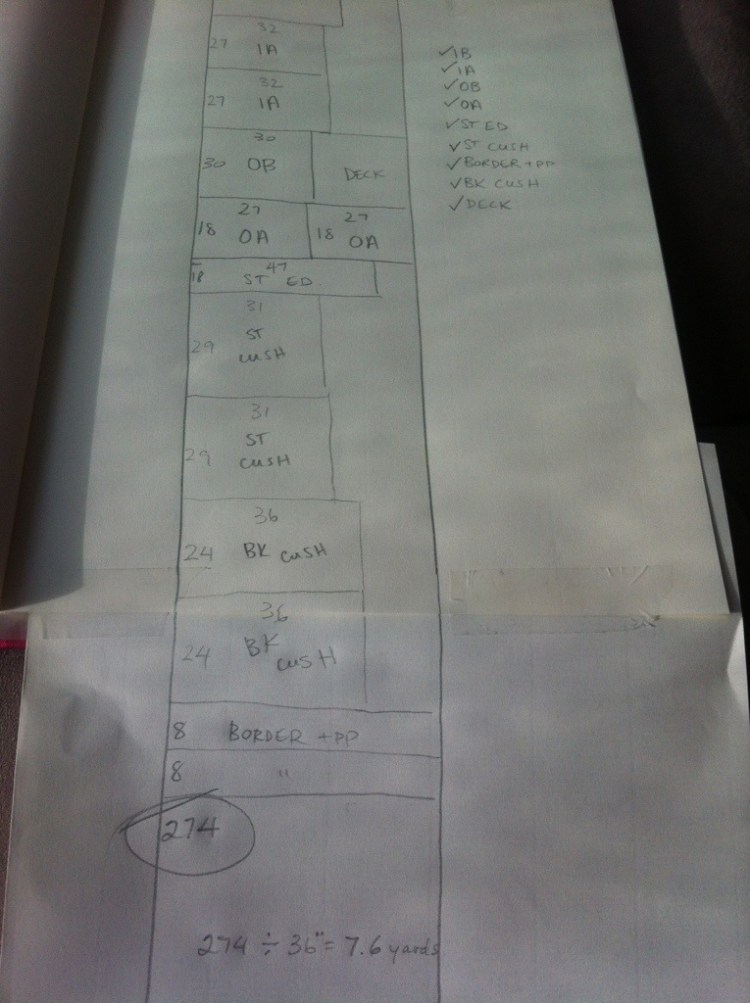 32
27 IA
32
27 IA
30
30 OB DECK
27 27
18 OA 18 OA
47
18 ST ED
31
ST
29 CUSH
31
ST
29 CUSH
36
24 BK CUSH
36
BK
24 CUSH
8 BORDER + PP
8 "
274
274 ÷ 36" = 7.6 yards
✓IB
✓IA
✓OB
✓OA
✓ST ED
✓ST CUSH
✓BORDER + PP
✓BK CUSH
✓DECK